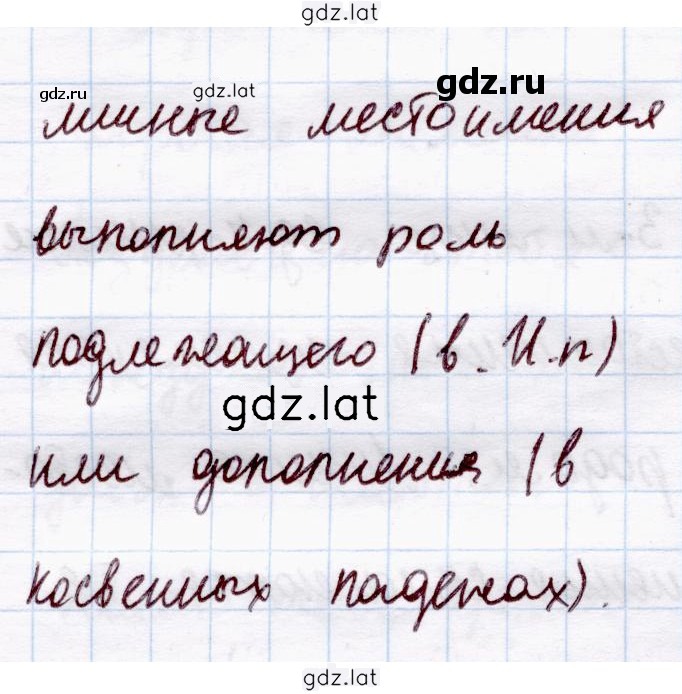 gdz.lat
gdz.ru gdz.lat gdz.ru
личные местоимения
выполняют роль
подлежащего (в. И.п)
gdz.lat
или дополнения (в
косвенных падежах).
gdz.lat